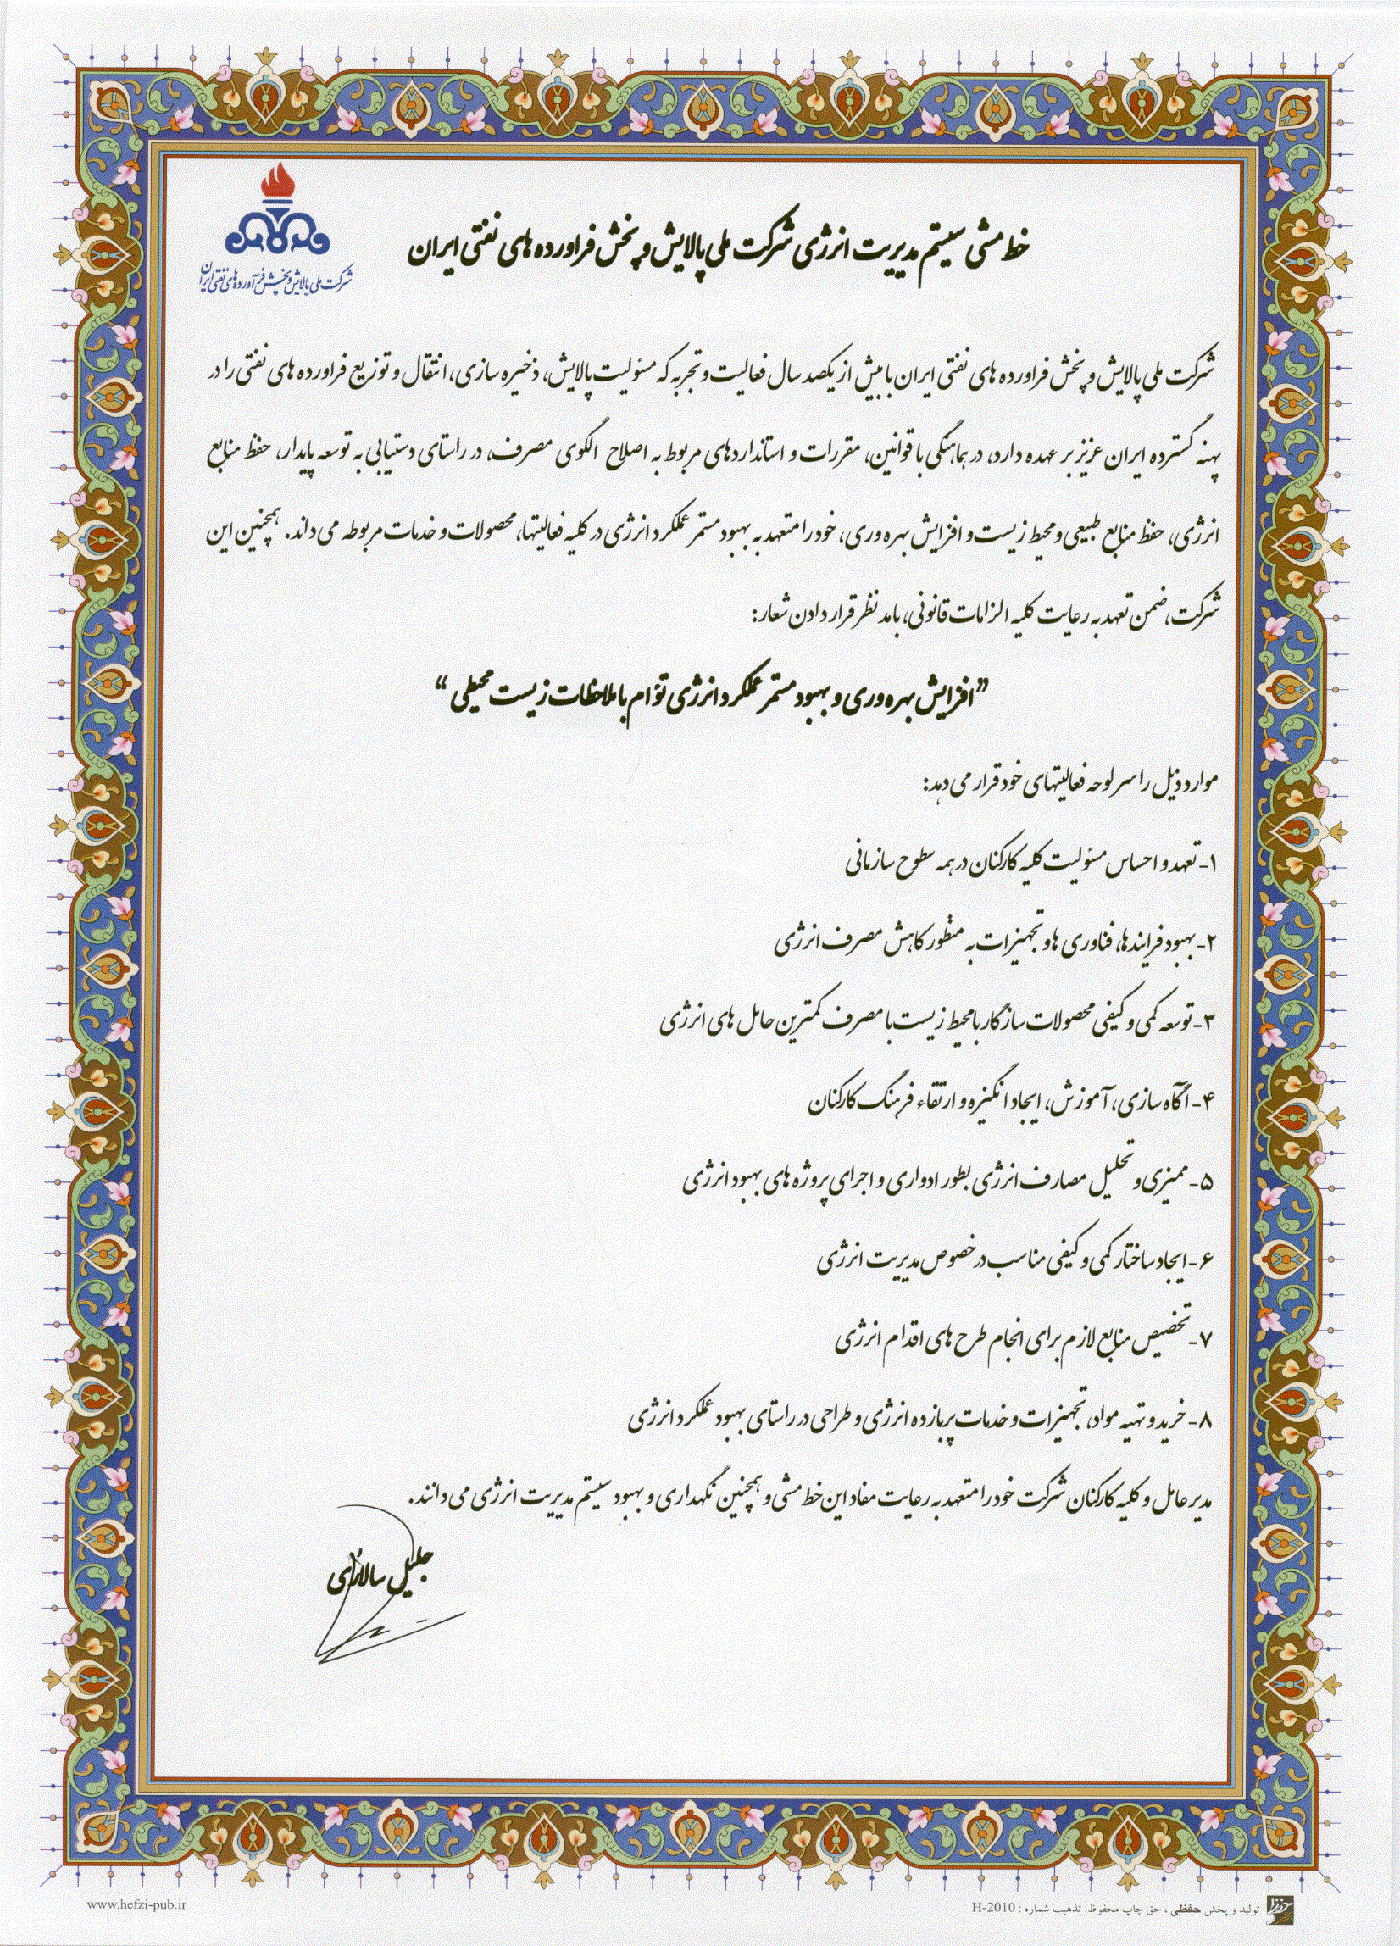 خط مشی سیستم مدیریت انرژی شرکت ملی پالایش و پخش فراورده های نفتی ایران
شرکت ملی پالایش و پخش فرآورده های نفتی ایران
شرکت ملی پالایش و پخش فراورده های نفتی ایران با بیش از یکصد سال فعالیت و تجربه که مسئولیت پالایش، ذخیره سازی، انتقال و توزیع فراورده های نفتی را در
پهنه گسترده ایران عزیز بر عهده دارد، در هماهنگی با قوانین، مقررات و استانداردهای مربوط به اصلاح الگوی مصرف، در راستای دستیابی به توسعه پایدار، حفظ منابع
انرژی، حفظ منابع طبیعی و محیط زیست و افزایش بهره وری، خود را متعهد به بهبود مستمر عملکرد انرژی در کلیه فعالیتها، محصولات و خدمات مربوطه می داند. همچنین این
شرکت، ضمن تعهد به رعایت کلیه الزامات قانونی، با مد نظر قرار دادن شعار:
”افزایش بهره وری و بهبود مستمر عملکرد انرژی توام با ملاحظات زیست محیطی“
موارد ذیل را سر لوحه فعالیتهای خود قرار می دهد:
۱- تعهد و احساس مسئولیت کلیه کارکنان در همه سطوح سازمانی
۲- بهبود فرایندها، فناوری ها و تجهیزات به منظور کاهش مصرف انرژی
۳- توسعه کمی و کیفی محصولات سازگار با محیط زیست با مصرف کمترین حامل های انرژی
۴- آگاه سازی، آموزش، ایجاد انگیزه و ارتقاء فرهنگ کارکنان
۵- ممیزی و تحلیل مصارف انرژی بطور ادواری و اجرای پروژه های بهبود انرژی
۶- ایجاد ساختار کمی و کیفی مناسب در خصوص مدیریت انرژی
۷- تخصیص منابع لازم برای انجام طرح های اقدام انرژی
۸- خرید و تهیه مواد، تجهیزات و خدمات پربازده انرژی و طراحی در راستای بهبود عملکرد انرژی
مدیر عامل و کلیه کارکنان شرکت خود را متعهد به رعایت مفاد این خط مشی و همچنین نگهداری و بهبود سیستم مدیریت انرژی می دانند.
جلیل سالاری
تولید و پخش حفظی، حق چاپ محفوظ تذهیب شماره: H-2010
www.hefzi-pub.ir